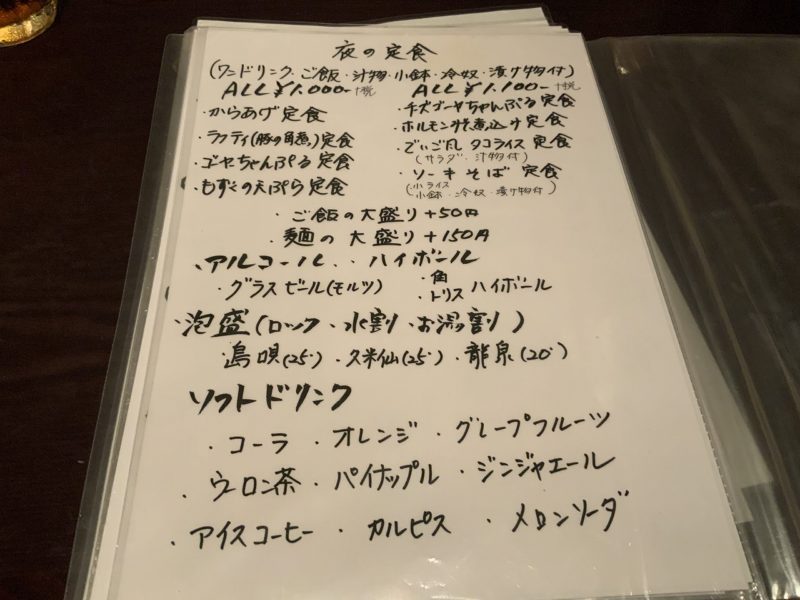 夜の定食
(ワンドリンク・ご飯・汁物・小鉢・冷奴・漬け物付)
ALL ¥1.000-+税 ALL ¥1.100-+税
・からあげ定食 ・チーズゴーヤちゃんぷる定食
・ホルモンみそ煮込み定食
・ラフティ(豚の角煮)定食 ・でいご风 タコライス定食
(サラダ・汁物付)
・ゴーヤちゃんぷる定食 ・ソーキそば定食
・もずくの天ぷら定食 (小ライス 小鉢・冷奴・漬け物付)
・ご飯の大盛り+50円
・麺の大盛り+150円
・アルコール、・ハイボール
・グラスビール(モルツ) ・角 ・トリス ハイボール
・泡盛(ロック・水割・お湯割)
・島唄(25°)・久米仙(25°)・龍泉(20°)
ソフトドリンク
・コーラ ・オレンジ ・グレープフルーツ
・ウーロン茶 ・パイナップル ・ジンジャエール
・アイスコーヒー ・カルピス ・メロンソーダ